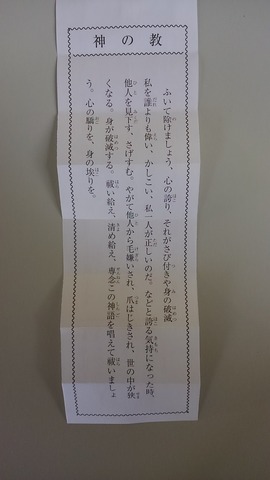 神の教
ふいて除けましょう、心の誇り、それがさび付きや身の破滅。
私を誰よりも偉い、かしこい、私一人が正しいのだ。などと誇る気持になった時、
他人を見下す、さげすむ。やがて他人から毛嫌いされ、爪はじきされ、世の中が狭
くなる。身が破滅する。祓い給え、清め給え、専念この神語を唱えて祓いましょ
う。心の驕りを、身の埃りを。